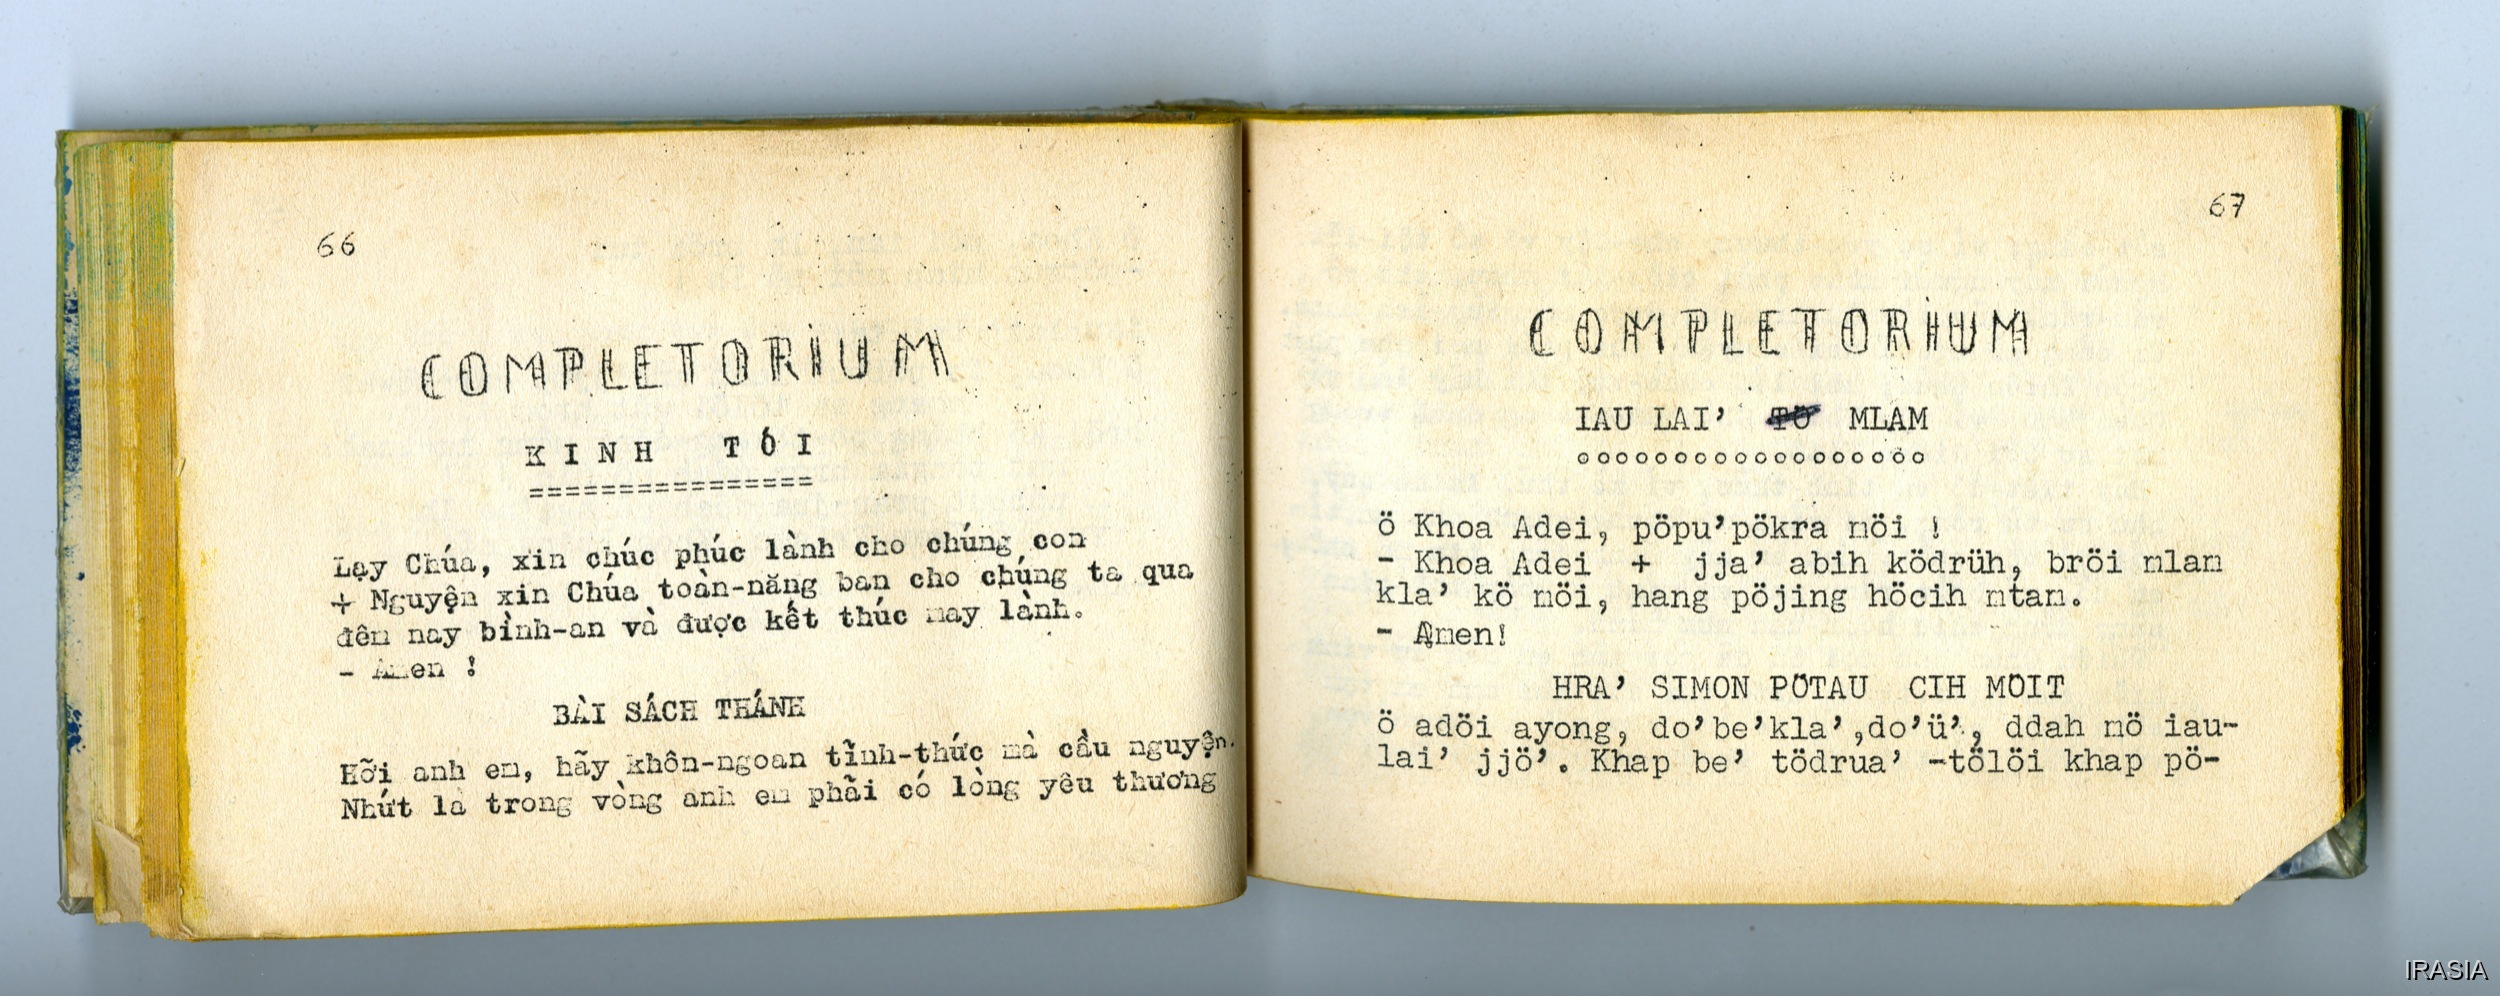 66
COMPLETORIUM
KINH TỐI
================
Lạy Chúa, xin chúc phúc lành cho chúng con
+ Nguyện xin Chúa toàn-năng ban cho chúng ta qua
đêm nay bình-an và được kết thúc may lành.
- Amen !
BÀI SÁCH THÁNH
Hỡi anh em, hãy khôn-ngoan tỉnh-thức mà cầu nguyện.
Nhứt là trong vòng anh em phải có lòng yêu thương
67
COMPLETORIUM
IAU LAI’ TÖ MLAM
oooooooooooooooooo
ö Khoa Adei, pöpu’pökra möi !
- Khoa Adei + jja’ abih ködrüh, bröi mlam
kla’ kö möi, hang pöjing höcih mtam.
- Amen!
HRA’ SIMON PÖTAU CIH MÖIT
ö adöi ayong, do’be’kla’,do’ü’, ddah mö iau-
lai’ jjö’. Khap be’ tödrua’ -tölöi khap pö-
IRASIA